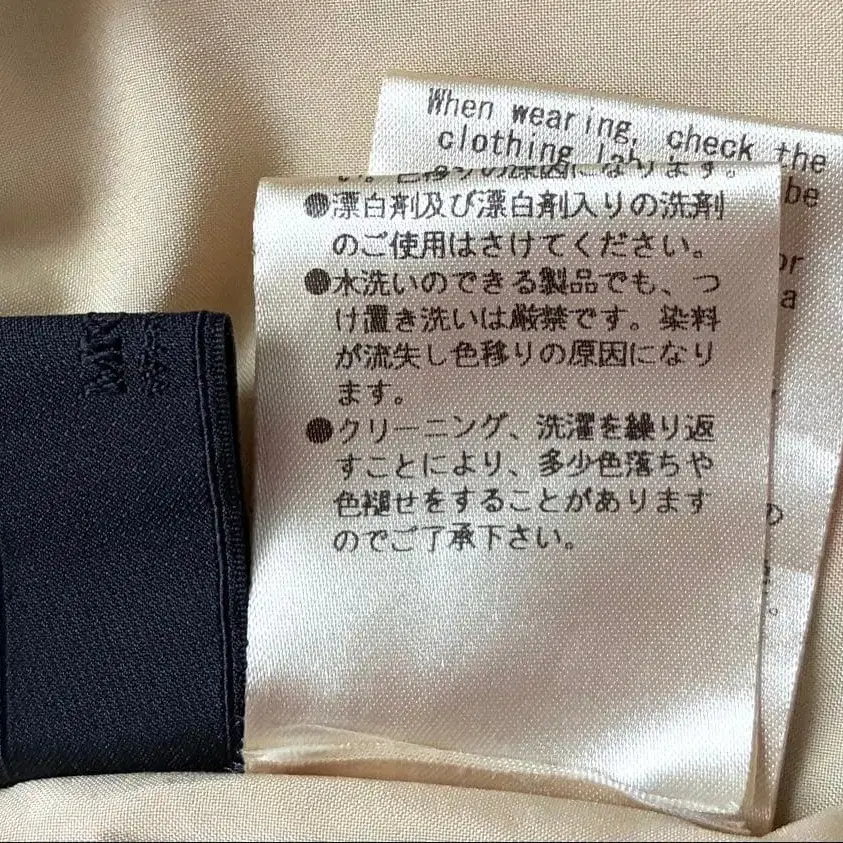 When wearing, check the
clothing
be
or
a
い。色移りの原因になります。
●漂白剤及び漂白剤入りの洗剤
のご使用はさけてください。
●水洗いのできる製品でも、つ
け置き洗いは厳禁です。染料
が流失し色移りの原因になり
ます。
●クリーニング、洗濯を繰り返
すことにより、多少色落ちや
色褪せをすることがあります
のでご了承下さい。
の